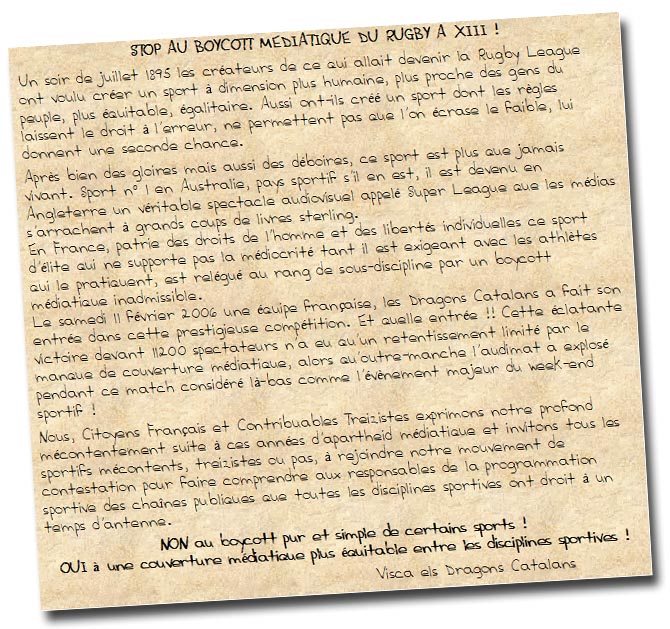 STOP AU BOYCOTT MEDIATIQUE DU RUGBY A XIII !
Un soir de juillet 1895 les créateurs de ce qui allait devenir la Rugby League
ont voulu créer un sport à dimension plus humaine, plus proche des gens du
peuple, plus équitable, égalitaire. Aussi ont-ils créé un sport dont les règles
laissent le droit à l'erreur, ne permettent pas que l'on écrase le faible, lui
donnent une seconde chance.
Après bien des gloires mais aussi des déboires, ce sport est plus que jamais
vivant. Sport n° 1 en Australie, pays sportif s'il en est, il est devenu en
Angleterre un véritable spectacle audiovisuel appelé Super League que les médias
s'arrachent à grands coups de livres sterling.
En France, patrie des droits de l'homme et des libertés individuelles ce sport
d'élite qui ne supporte pas la médiocrité tant il est exigeant avec les athlètes
qui le pratiquent, est relégué au rang de sous-discipline par un boycott
médiatique inadmissible.
Le samedi 11 février 2006 une équipe française, les Dragons Catalans a fait son
entrée dans cette prestigieuse compétition. Et quelle entrée !! Cette éclatante
victoire devant 11200 spectateurs n'a eu qu'un retentissement limité par le
manque de couverture médiatique, alors qu'outre-manche l'audimat a explosé
pendant ce match considéré là-bas comme l'évènement majeur du week-end
sportif !
Nous, Citoyens Français et Contribuables Treizistes exprimons notre profond
mécontentement suite à ces années d'apartheid médiatique et invitons tous les
sportifs mécontents, treizistes ou pas, à rejoindre notre mouvement de
contestation pour faire comprendre aux responsables de la programmation
sportive des chaînes publiques que toutes les disciplines sportives ont droit à un
temps d'antenne.
NON au boycott pur et simple de certains sports !
OUI à une couverture médiatique plus équitable entre les disciplines sportives !
Visca els Dragons Catalans